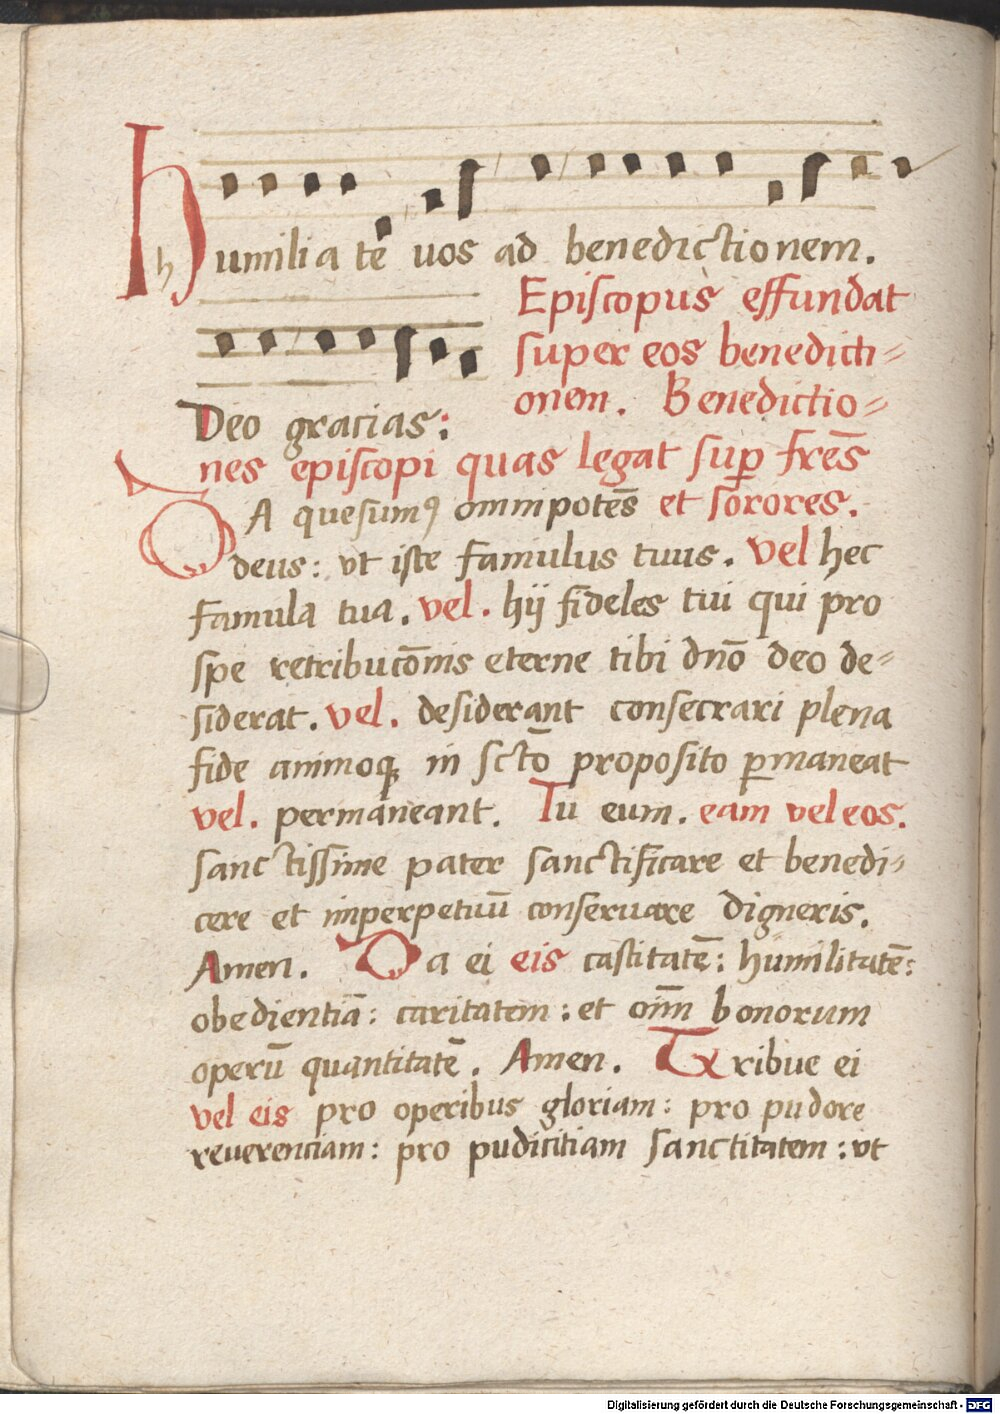 Humiliate vos ad benedictionem.
Episcopus effundat
super eos benedicti-
onem. Benedictio-
Deo gracias:
nes episcopi quas legat sup fres
DA quesumꝰ omnipotēs et sorores.
deus: ut iste famulus tuus. vel hec
famula tua. vel. hij fideles tui qui pro
spe retribucōnis eterne tibi dno deo de-
siderat. vel. desiderant consecrari plena
fide animoqꝫ in sctō proposito ꝑmaneat
vel. permaneant. Tu eum. eam vel eos.
sanctissime pater sanctificare et benedi-
cere et imperpetuū conseruare digneris.
Amen. Da ei eis castitatē: humilitatē:
obedientiā: caritatem: et oīm bonorum
operū quantitatē. Amen. Tribue ei
vel eis pro operibus gloriam: pro pudore
reuerenciam: pro pudicitiam sanctitatem: ut
Digitalisierung gefördert durch die Deutsche Forschungsgemeinschaft - DFG